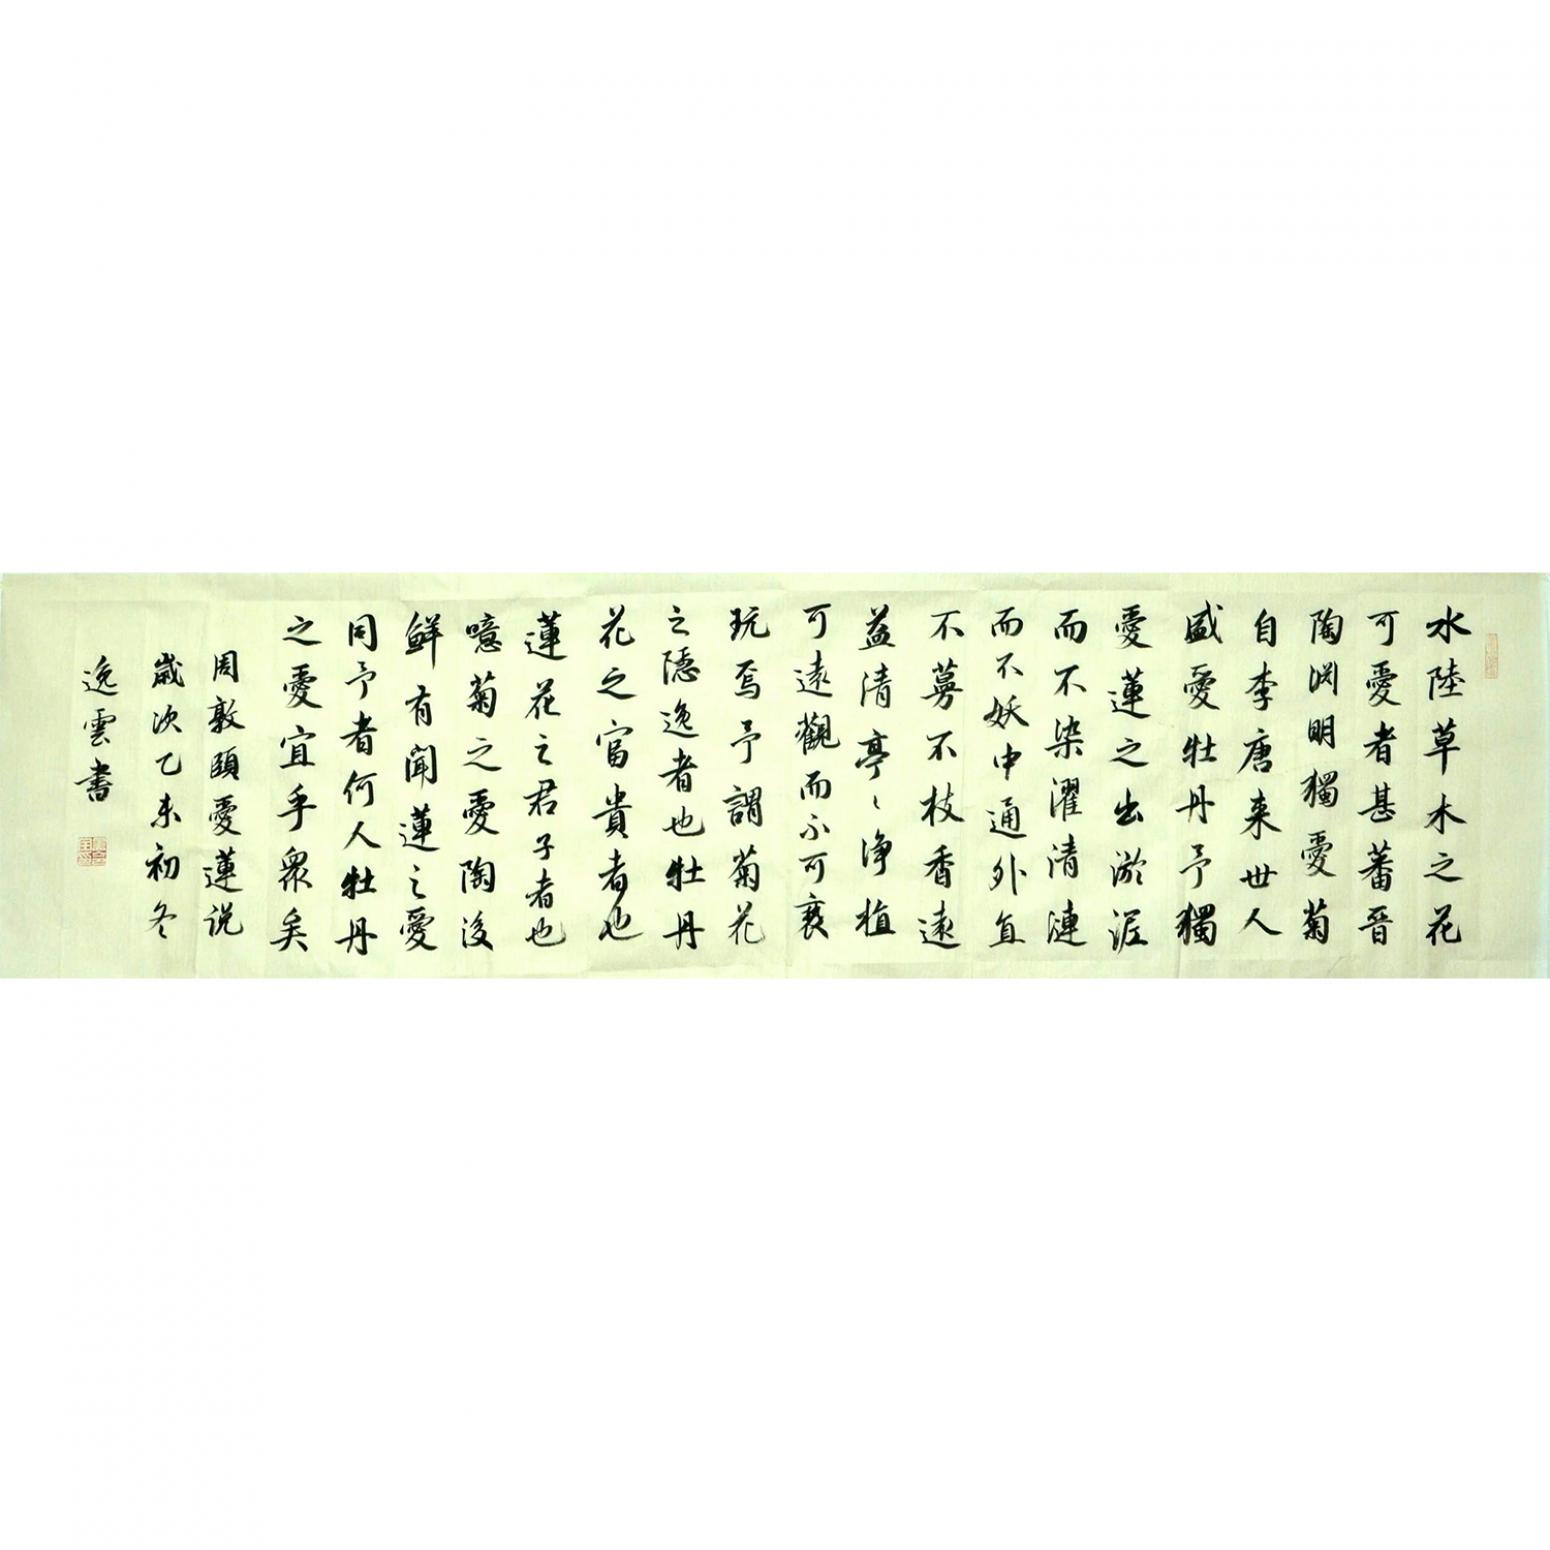 水陸草木之花
可愛者甚蕃晉
陶渊明獨愛菊
自李唐来世人
盛愛牡丹予獨
愛蓮之出淤泥
而不染濯清漣
而不妖中通外直
不蔓不枝香遠
益清亭〻浄植
可遠觀而不可褻
玩焉予謂菊花
之隱逸者也牡丹
花之富貴者也
蓮花之君子者也
噫菊之愛陶後
鮮有聞蓮之愛
同予者何人牡丹
之愛宜乎衆矣
周敦頤愛蓮说
歲次乙未初冬
逸雲書